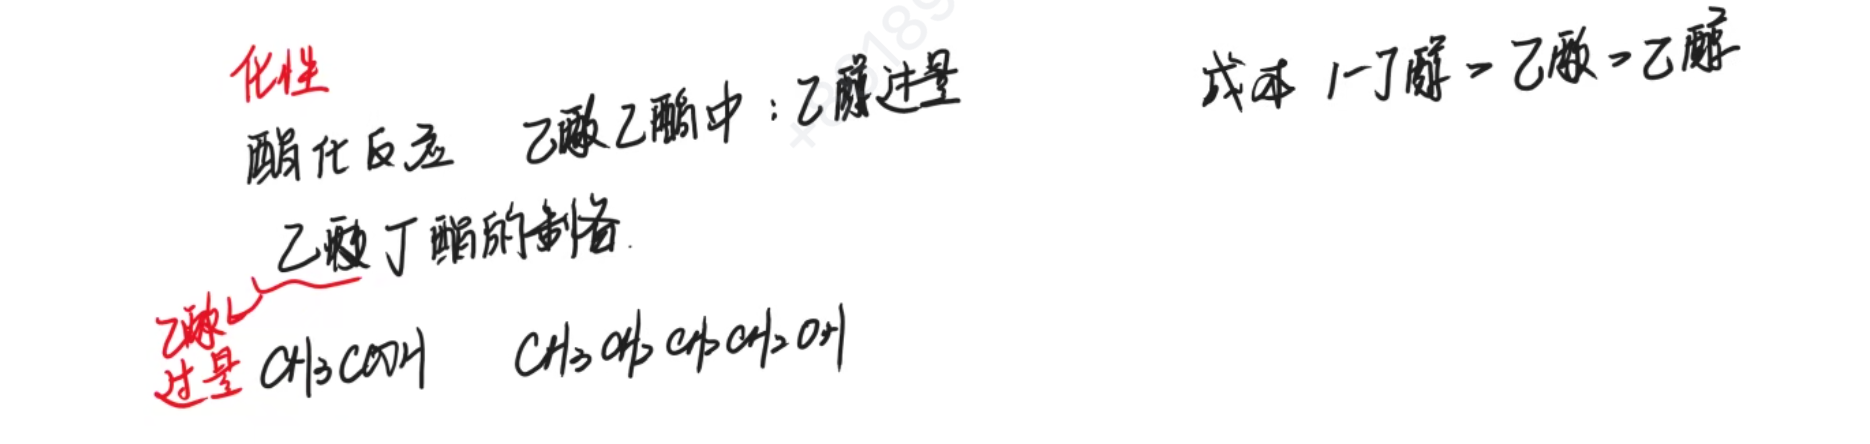 化性
酯化反应 乙酸乙酯中：乙醇过量
成本 1-丁醇 > 乙酸 > 乙醇
乙酸丁酯的制备.
乙酸
过量
CH3COOH CH3CH2CH2CH2OH